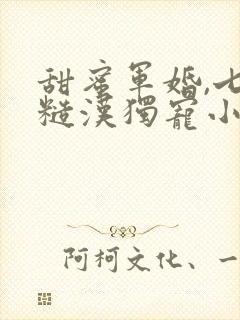 甜蜜軍婚,七
糙漢獨寵小
阿柯文化、一